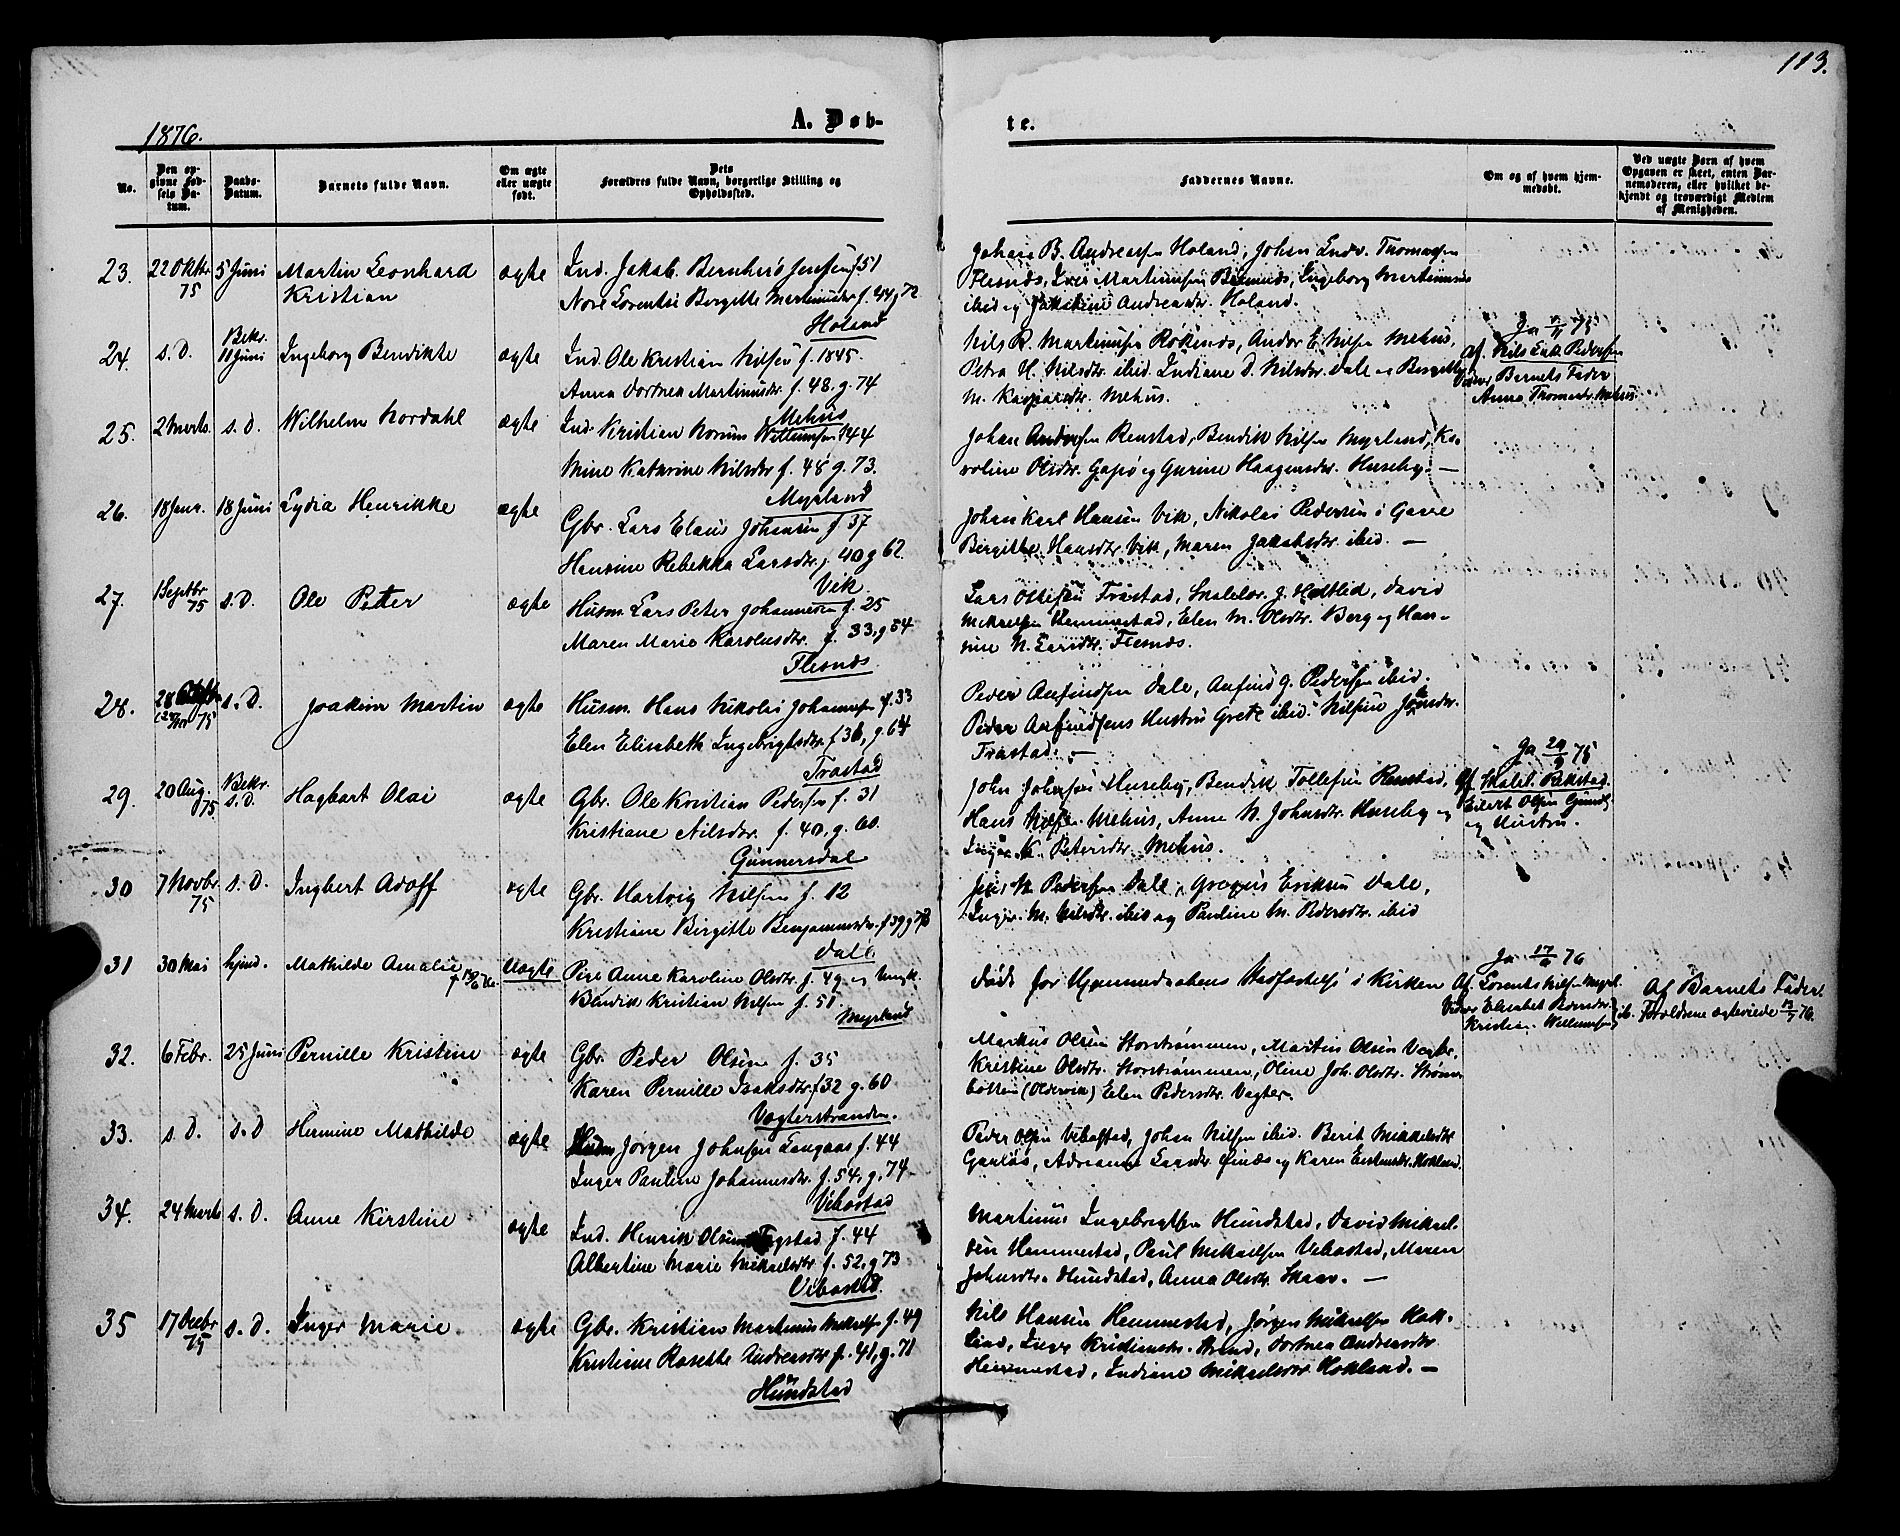 113.
1876.
A. Døb-
te.
No.
Den op-
givne Fød-
sels Da-
tum.
Daabs-
Datum.
Barnets fulde Navn.
Om ægte
eller uægte
født.
Dets
Forældres fulde Navn, borgerlige Stilling og
Opholdssted.
Faddernes Navne.
Om og af hvem hjem-
medøbt.
Ved uægte Børn af hvem
Opgaven er skeet, enten Bar-
nemoderen, eller hvilket be-
kjendt og troværdigt Medlem
af Menigheden.
23.
22 Oktbr
75
5 Juni
Martin Leonhard
Kristian
ægte
Ind. Jakob Bernhard Jensen f. 51
Nore Lorentse Bergitte Martinusdr f. 44 g 72
Holand
Johan B. Andreassen Holand, Johan Endr. Thomassen
Flesnæs, Martinussen Ingeborg Martinus
ibid og Jakobine Andreasdr. Holand.
24.
s. D.
Bekr.
11 Juni
Ingeborg Bendikte
ægte
Ind. Ole Kristian Nilsen f. 1845.
Anna Dortnea Martinusdr. f. 48. g. 74
Mehus
Nils R. Martinussen Røkenæs, Andor E. Nilsen Mehus,
Petra H. Nilsdtr. ibid. Indiane D. Nilsdr. Dale og Bergitte
M. Kasparsdr. Mehus.
Ja 75
Af Nils Pedersen
Vidner Barnets Fader
Anna Thomasdr. Mehus.
25.
2 Marts.
s. D.
Wilhelm Nordahl
ægte
Ind. Kristian Norum Willumsen f 44
Mine Kathrine Nilsdtr f. 48 g. 73.
Myrland
Johan Andersen Renstad, Bendik Nilsen Myrland, Ka-
roline Olsdtr. Gapø og Gurine Haagensdr. Huseby. —
26.
18 Janr.
18 Juni
Lydia Henrikke
ægte
Gbr. Lars Elaus Johansen f. 37
Hansine Rebekka Larsdtr. f 40 g 62.
Vik.
Johan Karl Hansen Vik, Nikolai Pedersen i Gaare
Birgithe Hansdtr. Vik, Maren Jakobsdtr. ibid. —
27.
1 Septbr
75
s. D.
Ole Petter
ægte
Husm. Lars Peter Johannesen f. 25
Maren Marie Karolusdtr. f. 33, g 54
Flesnæs.
Lars Trastad, David
Mikaelsen Hemmestad, Elen M. Olsdtr. Berg og Han-
sine N. Larsdtr. Flesnæs.
28.
28
75
s. D.
Joakim Martin
ægte
Husm. Hans Nikolai Johannesen f. 33
Elen Elisabeth Ingebrigtsdtr. f 36, g. 64
Trastad
Peder Arfindsen Dale, Anfind G. Pedersen ibid.
Peder Anfindsens Hustru Grete ibid. Nilsine Jonsdtr.
Trastad. —
29.
20 Aug.
75
Bekr.
s. D.
Hagbart Olai
ægte
Gbr. Ole Kristian Pedersen f. 31
Kristiane Nilsdtr. f. 40, g. 60.
Gunnersdal
John Johnsen Huseby, Bendik Tollefsen Renstad,
Hans Nilsen Mehus, Anne N. Johnsdtr. Huseby og
Inger K. Petersdtr. Mehus.
Ja 75
Af Skolel. Rokstad.
Eilert Olsen
og Hustru.
30
7 Novbr
75
s. D.
Ingbert Adoff
ægte
Gbr. Hartvig Nilsen f. 12
Kristiane Birgitte Benjaminsdtr. f 39 g 73
Dale
Jens N. Pedersen Dale, Eriksen Dale,
Inger M. Nilsdtr. ibid og Pauline M. Pedersdtr. ibid
31
30 Mai
hjemd.
Mathilde Amalie
Uægte
Pige Anne Karoline Olsdtr. f. 49 og Ungk.
Bendik Kristian Nilsen f. 51.
Myrland
Døde før Hjemmedaabens Stadfæstelse i Kirken
Ja 76
Af Lorents Nilsen Myrl.
Vidner Elisabet Pedersdtr.
Kristian Willumsen ib.
Af Barnets Fader.
Forældrene ægteviede 76.
32.
6 Febr.
25 Juni
Pernille Kristine
ægte
Gbr. Peder Olsen f. 35
Karen Pernille Isaksdtr. f 32 g. 60
Vagterstranden.
Markus Olsen Storstrømmen, Martin Olsen Vagter,
Kristine Olsdtr. Storstrømmen, Oline Joh. Olsdtr. Strøms-
botten (Oldervik) Elen Pedersdtr. Vagter.
33.
s. D.
s. D
Hermine Mathilde
ægte
Husm Jørgen Johnsen Langaas f. 44
Inger Pauline Johannesdtr. f. 54, g. 74
Vebostad
Peder Olsen Vebostad, Johan Nilsen ibid. Berit Mikkelsdtr
Adrianne Larsdtr. og Karen Hokland.
34.
24 Marts
s. D.
Anne Kirstine
ægte
Ind. Henrik Olsen f. 44
Albertine Marie Mikaelsdtr. f. 52, g 73
Vebostad.
Martinus Ingebrigtsen Hundstad, David Mikael-
sen Hemmestad, Paul Mikaelsen Vebostad, Maren
Johnsdtr. Hundstad, Anna Olsdtr. Skaar. —
35
17 Decbr
75
s. D.
Inger Marie
ægte
Gbr. Kristian Martinus Mikkelsen f. 49
Kristine Rosette Andreasdtr f. 41, g. 71
Hundstad
Nils Hansen Hemmestad, Jørgen Mikaelsen Hok-
land, Inger Kristiansdtr. Strand, Dortnea Andreasdtr
Hemmestad, Indiane Mikaelsdtr. Hokland. —